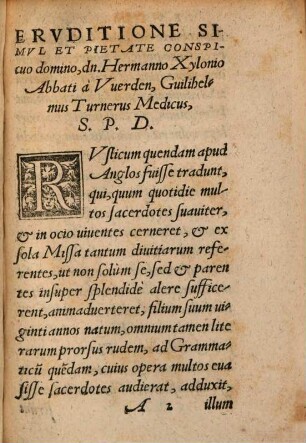 ERVDITIONE SI-
MVL ET PIETATE CONSPI-
cuo domino, dn. Hermanno Xylonio
Abbati à VVerden, Guilihel-
mus Turnerus Medicus,
S. P. D.
RVsticum quendam apud
Anglos fuisse tradunt,
qui, quum quotidie mul
tos sacerdotes suauiter,
& in ocio uiuentes cerneret, & ex
sola Missa tantum diuitiarum refe-
rentes, ut non solùm se, sed & paren
tes insuper splendidè alere suffice-
rent, animaduerteret, filium suum ui-
ginti annos natum, omnium tamen lite
rarum prorsus rudem, ad Gramma-
ticũ quẽdam, cuius opera multos eua
sisse sacerdotes audierat, adduxit,
A 2 illum